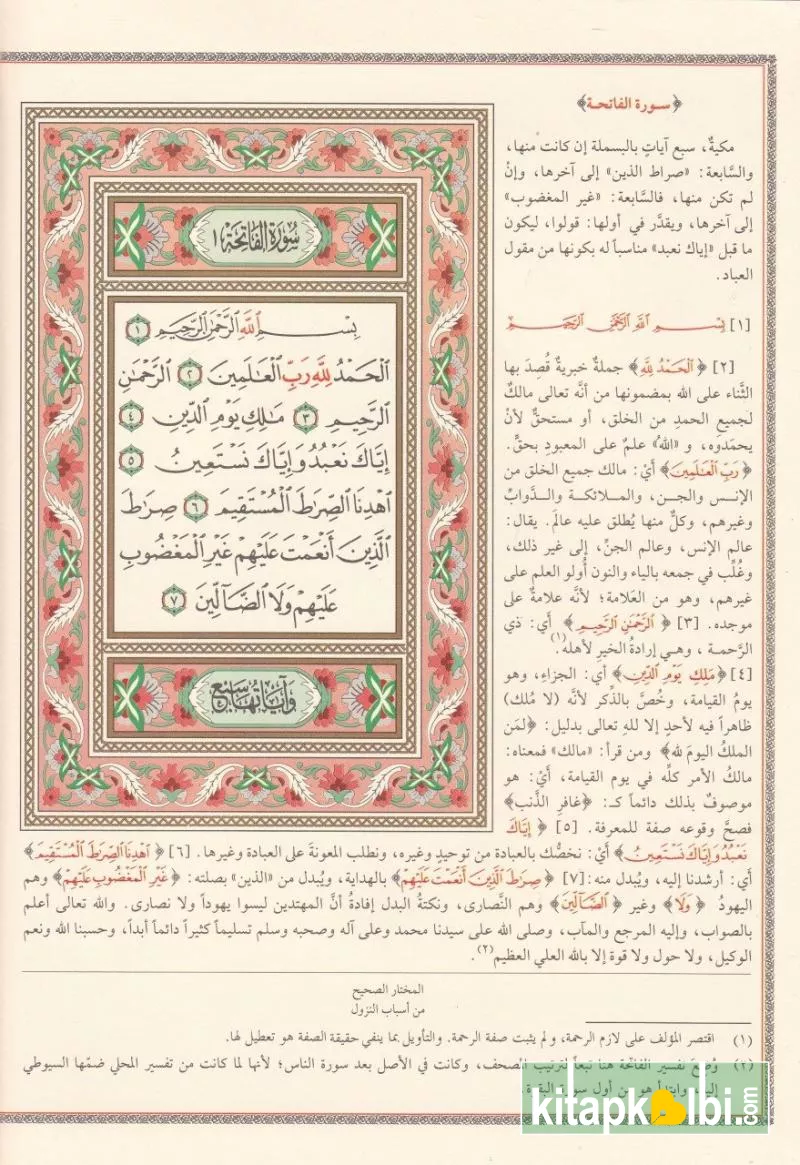 ﴿سورة الفاتحة﴾
مكيةٌ، سبع آياتٍ بالبسملة إن كانت منها،
والسَّابعة: «صراط الذين» إلى آخرها، وإنْ
لم تكن منها، فالسَّابعة: «غير المغضوب»
إلى آخرها، ويقدَّر في أولها: قولوا، ليكون
ما قبل «إياك نعبد» مناسباً له بكونها من مقول
العباد.
[١] بِسْمِ اللَّهِ الرَّحْمَٰنِ الرَّحِيمِ
[٢] ﴿الْحَمْدُ لِلَّهِ﴾ جملةٌ خبريةٌ قُصِدَ بها
الثَّناء على الله بمضمونها من أنَّه تعالى مالكٌ
لجميع الحمدِ من الخلق، أو مستحقٌّ لأنْ
يحمَدوه، و «اللهُ» علمٌ على المعبودِ بحقٍّ.
﴿رَبِّ الْعَالَمِينَ﴾ أيْ: مالك جميع الخلق من
الإنس والجن، والملائكة والدَّوابِّ
وغيرهم، وكلٌّ منها يُطلق عليه عالَم. يقال:
عالم الإنس، وعالم الجنِّ، إلى غير ذلك،
وغُلِّب في جمعه بالياء والنون أُولو العلم على
غيرهم، وهو من العَلامة؛ لأنَّه علامةٌ على
موجده. [٣] ﴿الرَّحْمَٰنِ الرَّحِيمِ﴾ أي: ذي
الرَّحمة، وهي إرادةُ الخيرِ لأهله(١).
[٤] ﴿مَلِكِ يَوْمِ الدِّينِ﴾ أي: الجزاءِ، وهو
يومُ القيامة، وخُصَّ بالذِّكر لأنَّه (لا مُلك)
ظاهراً فيه لأحدٍ إلا للهِ تعالى بدليل: ﴿لمَن
الملكُ اليومَ لله﴾ ومن قرأ: «مالك» فمعناه:
مالكُ الأمر كلِّه في يوم القيامة، أيْ: هو
موصوفٌ بذلك دائماً كـ: ﴿غافرِ الذَّنب﴾
فصحَّ وقوعه صفة للمعرفة. [٥] ﴿إِيَّاكَ
نَعْبُدُ وَإِيَّاكَ نَسْتَعِينُ﴾ أيْ: نخصُّك بالعبادة من توحيدٍ وغيره، ونطلب المعونةَ على العبادة وغيرها. [٦] ﴿اهْدِنَا الصِّرَاطَ الْمُسْتَقِيمَ﴾
أي: أرشدنا إليه، ويُبدل منه: [٧] ﴿صِرَاطَ الَّذِينَ أَنْعَمْتَ عَلَيْهِمْ﴾ بالهداية، ويُبدل من «الذين» بصلته: ﴿غَيْرِ الْمَغْضُوبِ عَلَيْهِمْ﴾ وهم
اليهودُ ﴿وَلَا﴾ وغير ﴿الضَّالِّينَ﴾ وهم النَّصارى، ونكتةُ البدل إفادةُ أنَّ المهتدين ليسوا يهوداً ولا نصارى. والله تعالى أعلم
بالصواب، وإليه المرجع والمآب، وصلى الله على سيدنا محمد وعلى آله وصحبه وسلم تسليماً كثيراً دائماً أبداً، وحسبنا الله ونعم
الوكيل، ولا حول ولا قوة إلا بالله العلي العظيم(٢).
سُورَةُ الْفَاتِحَةِ ١
بِسْمِ اللَّهِ الرَّحْمَٰنِ الرَّحِيمِ ١
الْحَمْدُ لِلَّهِ رَبِّ الْعَالَمِينَ ٢ الرَّحْمَٰنِ
الرَّحِيمِ ٣ مَالِكِ يَوْمِ الدِّينِ ٤
إِيَّاكَ نَعْبُدُ وَإِيَّاكَ نَسْتَعِينُ ٥
اهْدِنَا الصِّرَاطَ الْمُسْتَقِيمَ ٦ صِرَاطَ
الَّذِينَ أَنْعَمْتَ عَلَيْهِمْ غَيْرِ الْمَغْضُوبِ
عَلَيْهِمْ وَلَا الضَّالِّينَ ٧
وَآيَاتُهَا سَبْعٌ
المختار الصحيح
من أسباب النزول
(١) اقتصر المؤلف على لازم الرحمة، ولم يثبت صفة الرحمة. والتأويل بما ينفي حقيقة الصفة هو تعطيل لها.
(٢) وُضِعَ تفسير الفاتحة هنا تبعاً لترتيب المصحف، وكانت في الأصل بعد سورة الناس؛ لأنها لما كانت من تفسير المحلي ضمّها السيوطي
إليه، وابتدأ هو من أول سورة البقرة.
kitapkalbi.com